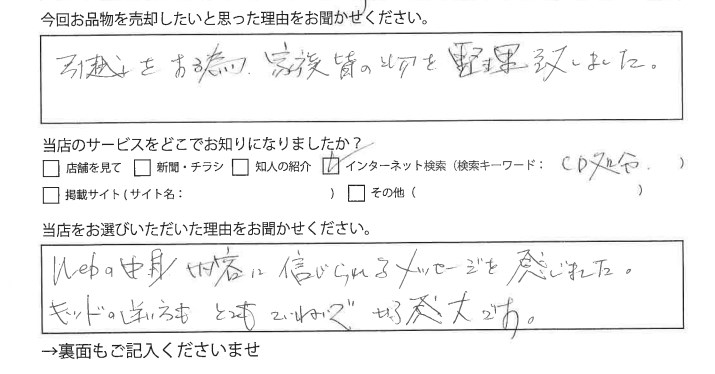 今回お品物を売却したいと思った理由をお聞かせください。
引越しをする為、家族皆の物を整理致しました。
当店のサービスをどこでお知りになりましたか?
□ 店舗を見て □ 新聞・チラシ □ 知人の紹介 ☑ インターネット検索(検索キーワード: CD処分 )
□ 掲載サイト(サイト名: ) □ その他( )
当店をお選びいただいた理由をお聞かせください。
Webの 内容に信じられるメッセージを感じました。
キッドの送り方も とても ていねいで です。
→裏面もご記入くださいませ